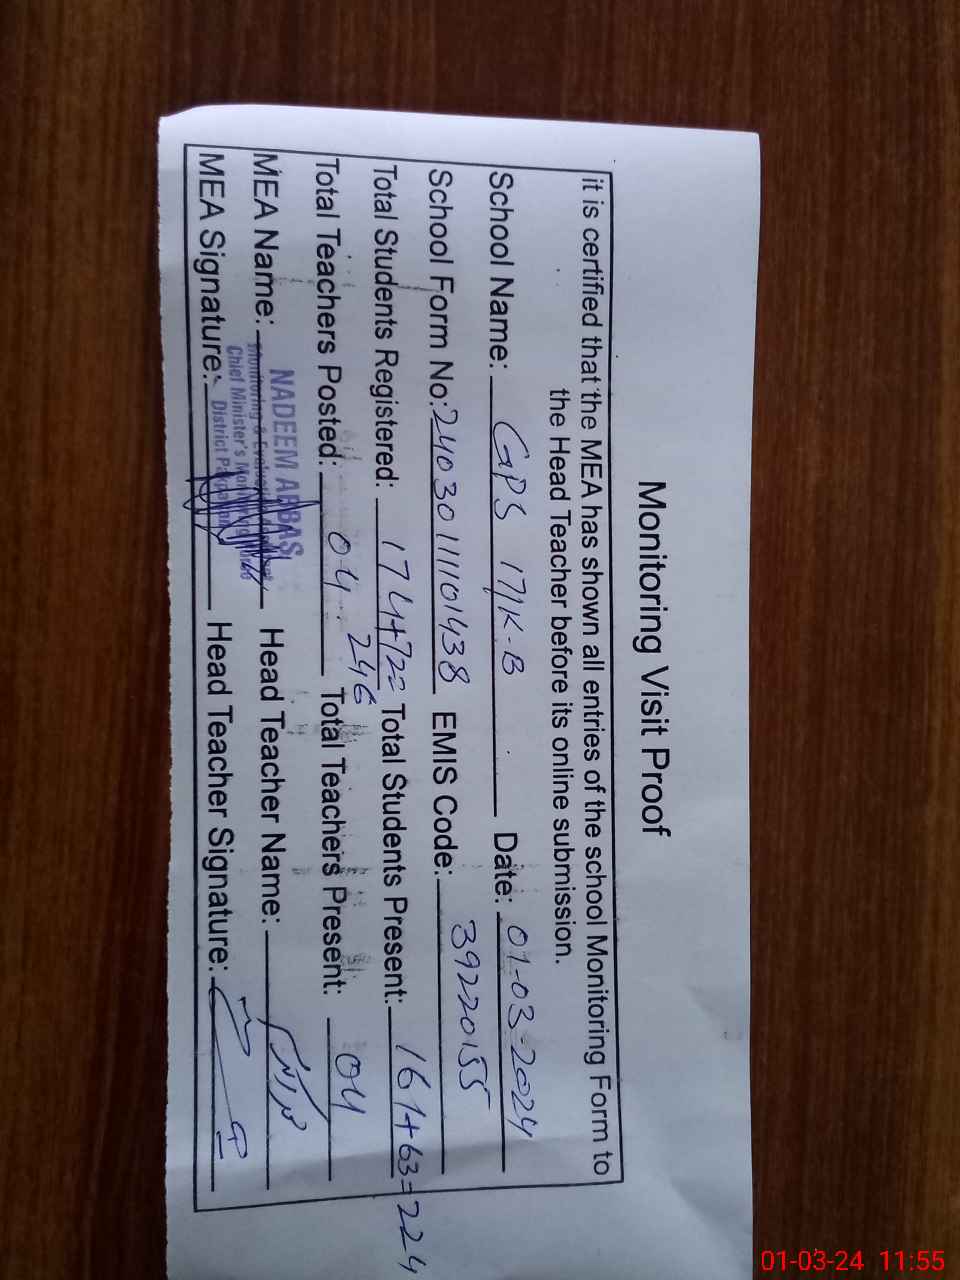 Monitoring Visit Proof
it is certified that the MEA has shown all entries of the school Monitoring Form to
the Head Teacher before its online submission.
School Name: GPS 17/K-B Date: 01-03-2024
School Form No: 24030111101438 EMIS Code: 39220155
Total Students Registered: 174+72= 246 Total Students Present: 161+63=224
Total Teachers Posted: 04 Total Teachers Present: 04
MEA Name: NADEEM ABBAS Head Teacher Name:
Monitoring & Evaluation
Chief Minister's Monitoring
District Pakpattan
MEA Signature: Head Teacher Signature:
01-03-24 11:55